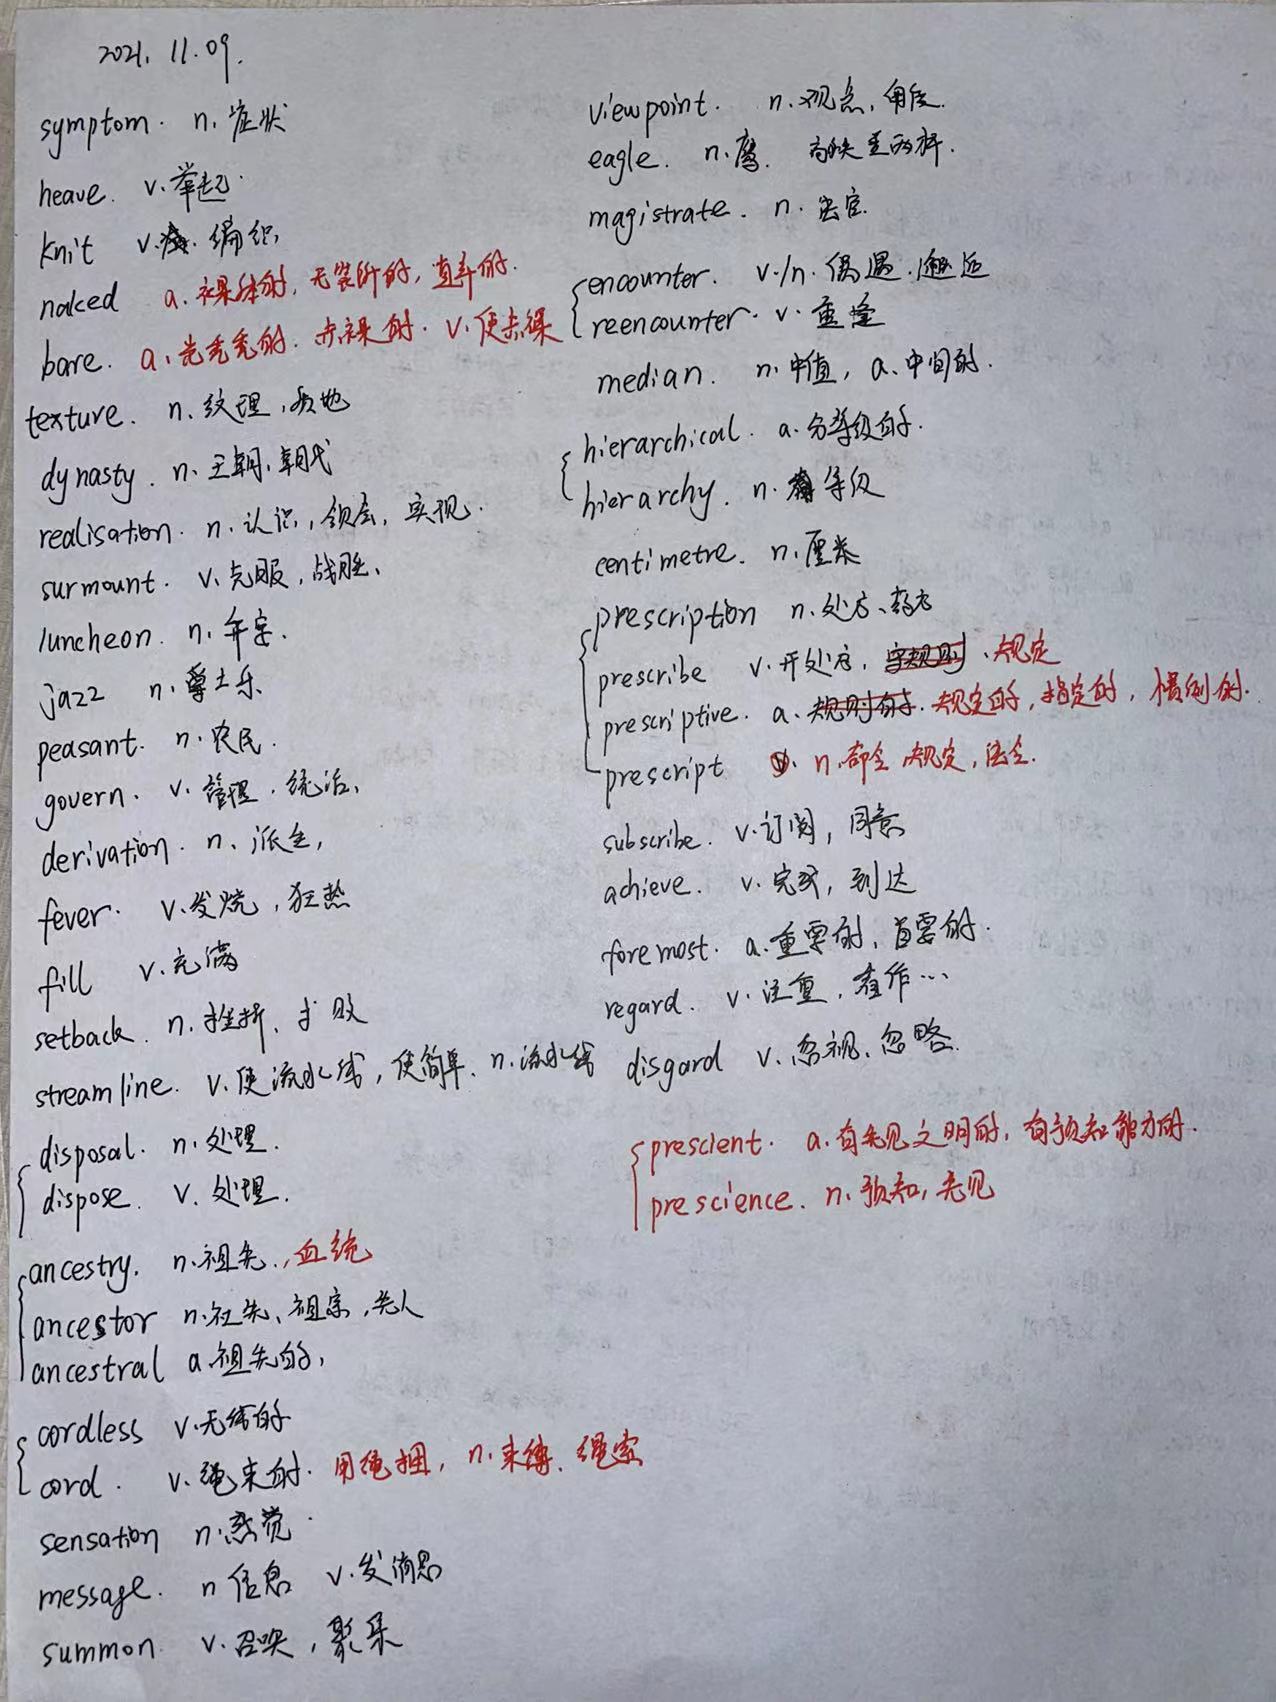 2021. 11.09.
symptom. n. 症状
heave. v. 举起.
knit v. 编织.
naked a. 裸体的, 无装饰的, 直率的.
bare. a. 光秃秃的. 赤裸的. v. 使赤裸
texture. n. 纹理, 质地
dynasty. n. 王朝, 朝代
realisation. n. 认识, 领会, 实现.
surmount. v. 克服, 战胜.
luncheon. n. 午宴.
jazz n. 爵士乐
peasant. n. 农民.
govern. v. 管理. 统治.
derivation. n. 派生,
fever. v. 发烧, 狂热
fill v. 充满
setback. n. 挫折、打败
streamline. v. 使流水线, 使简单. n. 流水线
disposal. n. 处理.
dispose. v. 处理.
ancestry. n. 祖先., 血统
ancestor n. 祖先、祖宗, 先人
ancestral a. 祖先的,
cordless v. 无线的
cord. v. 绳束的. 用绳捆, n. 束缚. 绳索
sensation n. 感觉.
message. n 信息 v. 发消息
summon. v. 召唤, 聚集
viewpoint. n. 观点, 角度.
eagle. n. 鹰.
magistrate. n. 法官.
encounter. v./n. 偶遇. 邂逅
reencounter. v. 重逢
median. n. 中值, a. 中间的.
hierarchical. a. 分等级的.
hierarchy. n. 等级
centimetre. n. 厘米
prescription n. 处方、药方
prescribe v. 开处方, 守规则、规定
prescriptive. a. 规则的. 规定的, 指定的, 惯例的.
prescript n. 命令, 规定, 法令.
subscribe. v. 订阅, 同意
achieve. v. 完成, 到达
foremost. a. 重要的, 首要的.
regard. v. 注重, 看作…
disgard v. 忽视、忽略.
prescient. a. 有先见之明的, 有预知能力的.
prescience. n. 预知, 先见